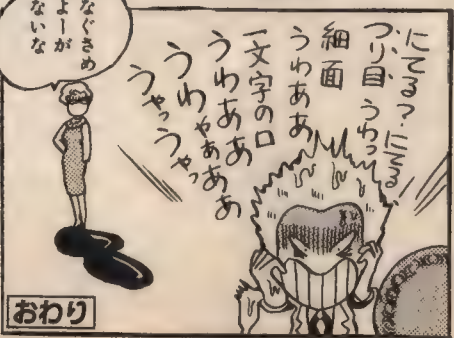 にてる？にてる
つり目 うわっ
細面
うわああ
一文字の口
うわああ
うわゃぁああ
うゃっうゃっ
なぐさめ
よーが
ないな
おわり